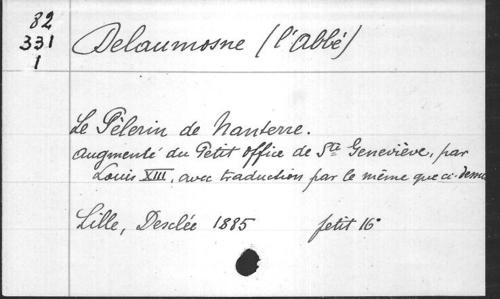 82
331
1
Delaumosne (l'Abbé)
Le Pélerin de Nanterre.
augmenté du Petit office de Ste Geneviève, par
Louis XIII, avec traduction par le même que ci-dessus
Lille, Desclée 1885 petit 16°